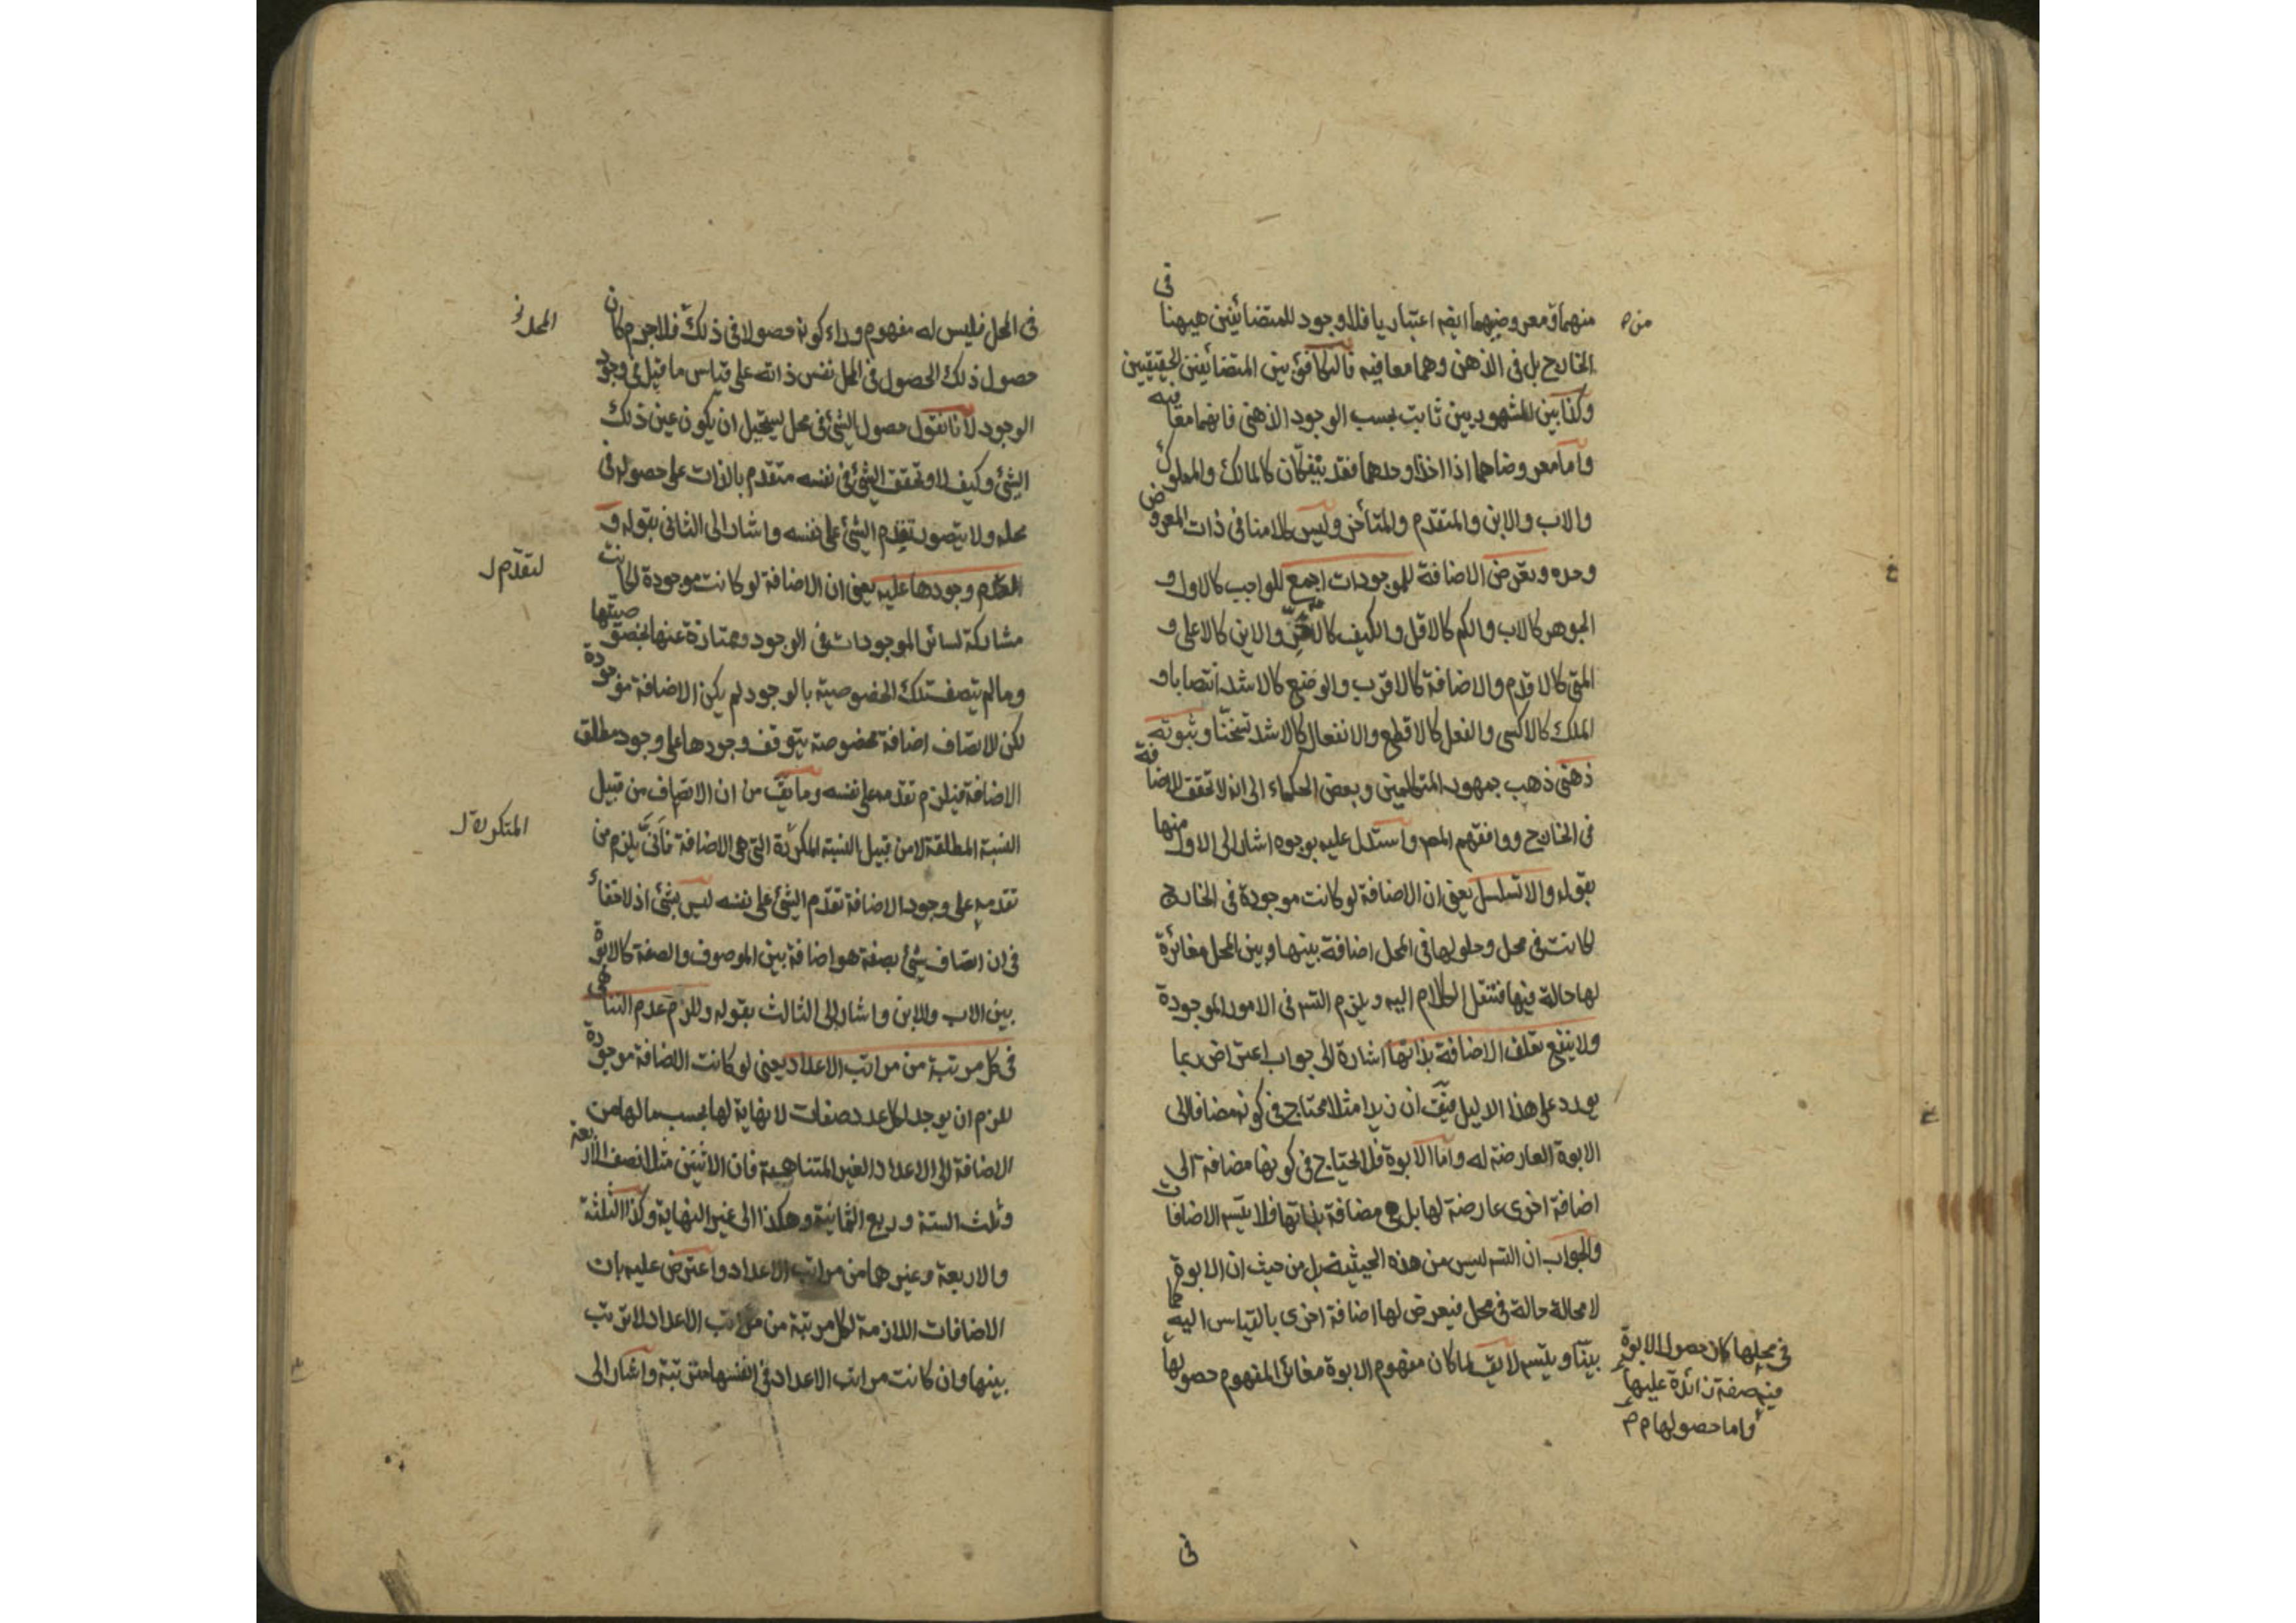 منهما ومعروضيهما ايضا اعتباريا فلا وجود للمتضائفين هيهنا في
الخارج بل في الذهن وهما معا فيه فالتكافؤ بين المتضائفين الحقيقيين
وكذا بين المشهوريين ثابت بحسب الوجود الذهني فانهما معا فيه
واما معروضاهما اذا اخذا وحدهما فقد ينفكان كالمالك والمملوك
والاب والابن والمتقدم والمتأخر وليس كلامنا في ذات المعروض
وحده وتعرض الاضافة للموجودات اجمع للواجب كالاول و
الجوهر كالاب والكم كالاقل والكيف كالاحر والاين كالاعلى و
المتى كالاقدم والاضافة كالاقرب والوضع كالاشد انتصابا و
الملك كالاكسى والفعل كالاقطع والانفعال كالاشد تسخنا وثبوته
ذهني ذهب جمهور المتكلمين وبعض الحكماء الى انه لا تحقق للاضافة
في الخارج ووافقهم المص واستدل عليه بوجوه اشار الى الاول منها
بقوله والا تسلسل يعني ان الاضافة لو كانت موجودة في الخارج
لكانت في محل وحلولها في المحل اضافة بينها وبين المحل مغائرة
لها حالة فيها فتنقل الكلام اليه ويلزم التسم في الامور الموجودة
ولا ينفع تعلق الاضافة بذاتها اشارة الى جواب اعتراض ربما
يورد على هذا الدليل فيق ان زيدا مثلا محتاج في كونه مضافا الى
الابوة العارضة له واما الابوة فلا يحتاج في كونها مضافة الى
اضافة اخرى عارضة لها بل هي مضافة بذاتها فلا يتسم الاضافات
والجواب ان التسم ليس من هذه الحيثية بل من حيث ان الابوة
لا محالة حالة في محل فيعرض لها اضافة اخرى بالقياس اليه كما
بينا ويتسم لا يق لما كان مفهوم الابوة مغائر المفهوم حصولها
في محلها كان حصول الابوة
فيه صفة زائدة عليها
واما حصولها م م
في
في المحل فليس له مفهوم وراء كونه حصولا في ذلك فلا جرم كان
المحل
حصول ذلك الحصول في المحل نفس ذاته على قياس ما قيل في وجود
الوجود لانا نقول حصول الشئ في محل يستحيل ان يكون عين ذلك
الشئ وكيف لا وتحقق الشئ في نفسه متقدم بالذات على حصوله في
محله ولا يتصور تقدم الشئ على نفسه واشار الى الثاني بقوله و
وجودها عليه يعني ان الاضافة لو كانت موجودة لكانت
لتقدم ل
مشاركة لسائر الموجودات في الوجود وممتازة عنها بخصوصيتها
وما لم يتصف تلك الخصوصية بالوجود لم يكن الاضافة موجودة
لكن الاتصاف اضافة مخصوصة يتوقف وجودها على وجود مطلق
الاضافة فيلزم تقدمه على نفسه وما يق من ان الاتصاف من قبيل
النسبة المطلقة لا من قبيل النسبة المكررة التي هي الاضافة فأنى يلزم من
المتكررة ل
تقدمه على وجود الاضافة تقدم الشئ على نفسه ليس بشئ اذ لا خفاء
في ان اتصاف شئ بصفة هو اضافة بين الموصوف والصفة كالابوة
بين الاب والابن واشار الى الثالث بقوله وللزم عدم التناهي
في كل مرتبة من مراتب الاعداد يعني لو كانت الاضافة موجودة
للزم ان يوجد لكل عدد صفات لا نهاية لها بحسب ما لها من
الاضافة الى الاعداد الغير المتناهية فان الاثنين مثلا نصف الاربعة
وثلث الستة وربع الثمانية وهكذا الى غير النهاية وكذا الثلثة
والاربعة وغيرهما من مراتب الاعداد واعترض عليه بان
الاضافات اللازمة لكل مرتبة من مراتب الاعداد لا ترتب
بينها وان كانت مراتب الاعداد في انفسها مترتبة واشار الى